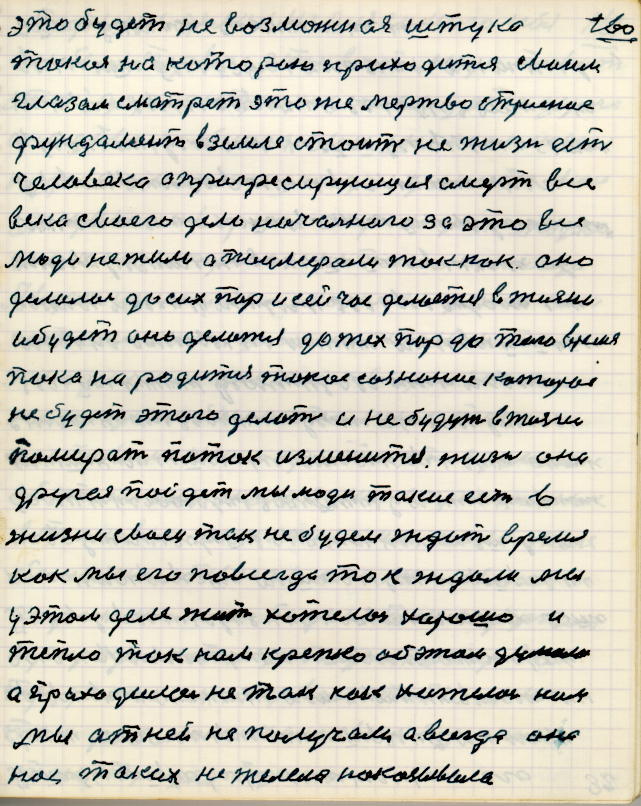 это будет не возможная штука 160
такая на которою приходится своим
глазам смотрет это же мертво
фундамент в земле стоит не жизн ест
человека а прогресирующия смерт все
века своего дело началного за это все
люди не жили а поумерали так как. оно
делалос до сих пор и сейчас делаетея в жизни
и будет оно делатся до тех пор до того время
пока на родится такое сознание которое
не будет этого делат и не будут в жизни
помират поток изменится. жизн она
другая пойдет мы люди такие ест в
жизни своеи так не будем ждат время
как мы его повсегда так ждали мы
у этом деле жит хотелос хорошо и
тепло так нам крепко об этом думали
а приходилос не так как хотелос нам
мы от ней не получали а всегда она
нас таких не жилела наказывала